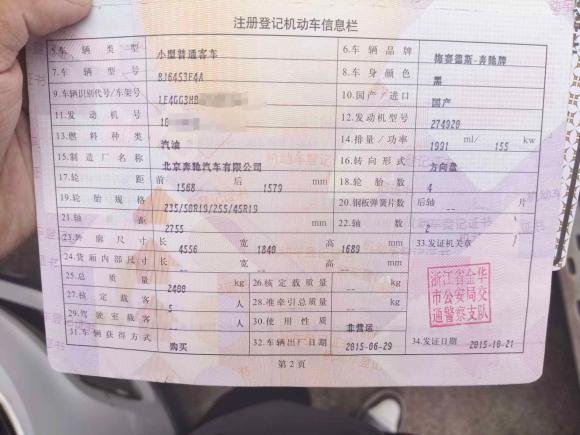 注册登记机动车信息栏
5.车辆类型 小型普通客车 6.车辆品牌 梅赛德斯-奔驰牌
7.车辆型号 BJ6453F4A 8.车身颜色 黑
9.车辆识别代号/车架号 LE4GG3HB 10.国产/进口 国产
11.发动机号 18 12.发动机型号 274920
13.燃料种类 汽油 14.排量/功率 1991 ml/ 155 kw
15.制造厂名称 北京奔驰汽车有限公司 16.转向形式 方向盘
17.轮距 前 1568 后 1579 mm 18.轮胎数 4
19.轮胎规格 235/50R19/255/45R19 20.钢板弹簧片数 后轴 -- 片
21.轴距 2755 mm 22.轴数 2
23.外廓尺寸 长 4556 宽 1840 高 1689 mm 33.发证机关章
24.货厢内部尺寸 长 -- 宽 -- 高 -- mm
25.总质量 2400 kg 26.核定载质量 -- kg
27.核定载客 5 人 28.准牵引总质量 -- kg
29.驾驶室载客 -- 人 30.使用性质 非营运
31.车辆获得方式 购买 32.车辆出厂日期 2015-06-29 34.发证日期 2015-10-21
浙江省金华
市公安局交
通警察支队
第2页